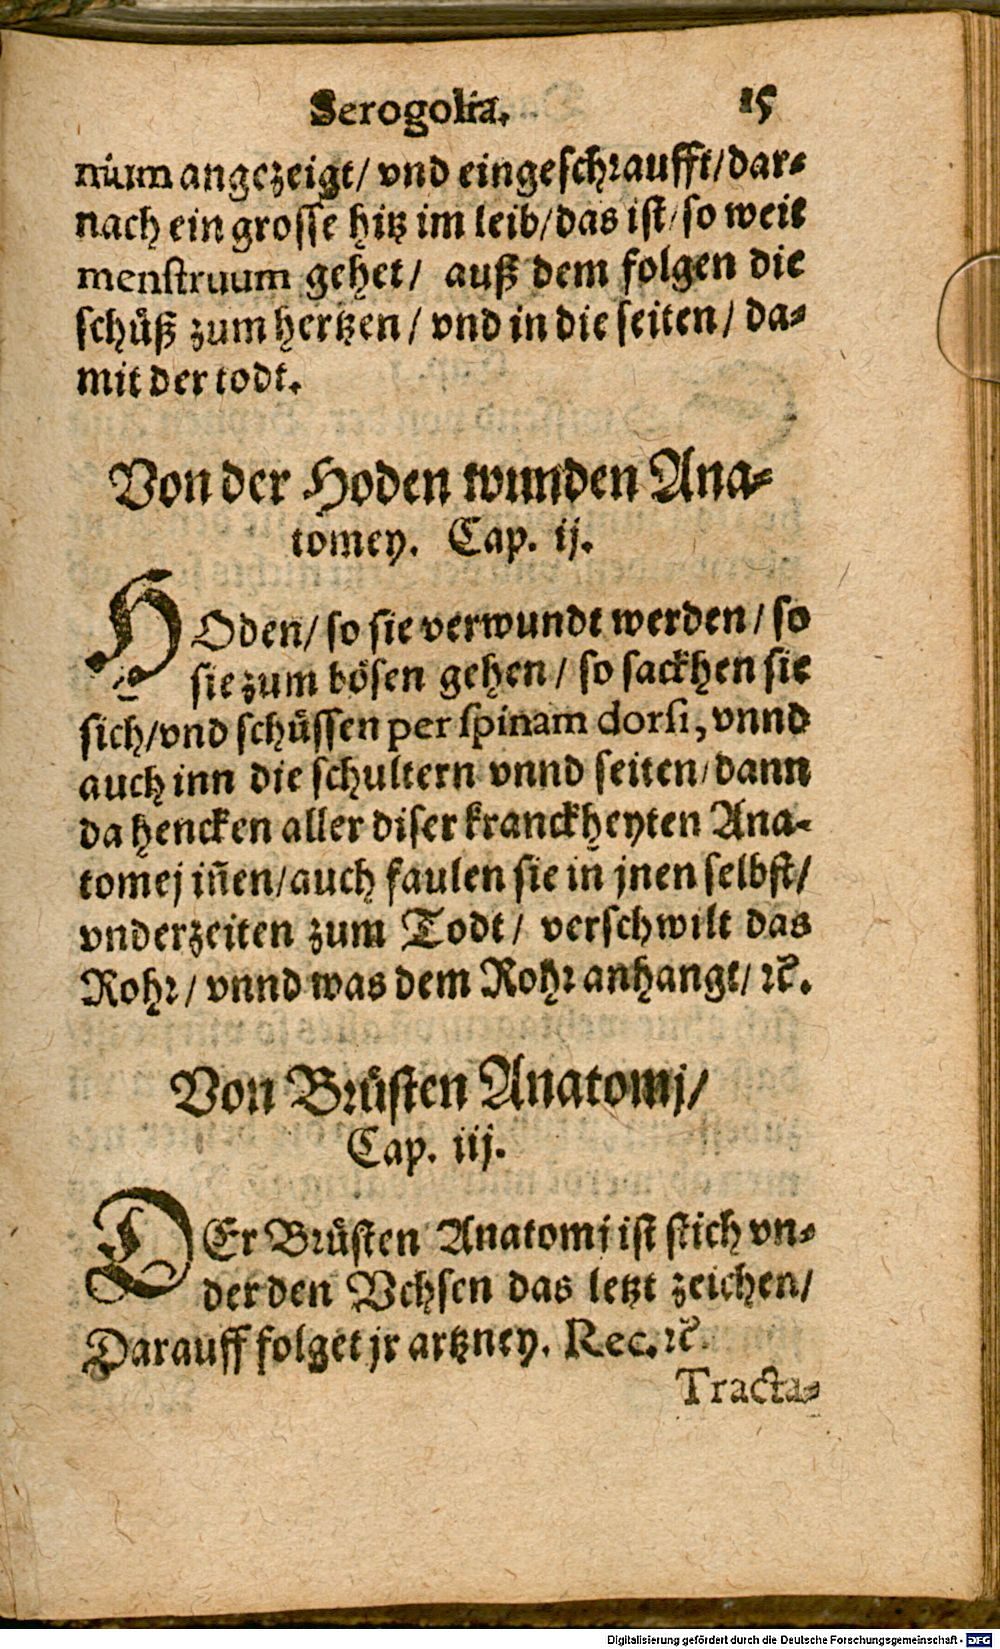 Serogolia. 15
nium angezeigt/ vnd eingeschraufft/dar-
nach ein grosse hitz im leib/das ist/so weit
menstruum gehet/ auß dem folgen die
schüß zum hertzen/ vnd in die seiten/ da-
mit der todt.
Von der Hoden wunden Ana-
tomey. Cap. ij.
HOden/ so sie verwundt werden/ so
sie zum bösen gehen/ so sackhen sie
sich/vnd schüssen per spinam dorsi, vnnd
auch inn die schultern vnnd seiten/dann
da hencken aller diser kranckheyten Ana-
tomej iñen/auch faulen sie in jnen selbst/
vnderzeiten zum Todt/ verschwilt das
Rohr/ vnnd was dem Rohr anhangt/ ꝛc.
Von Brüsten Anatomj/
Cap. iij.
DEr Brüsten Anatomj ist stich vn-
der den Vchsen das letzt zeichen/
Darauff folget jr artzney. Rec. ꝛc.
Tracta-
Digitalisierung gefördert durch die Deutsche Forschungsgemeinschaft - DFG